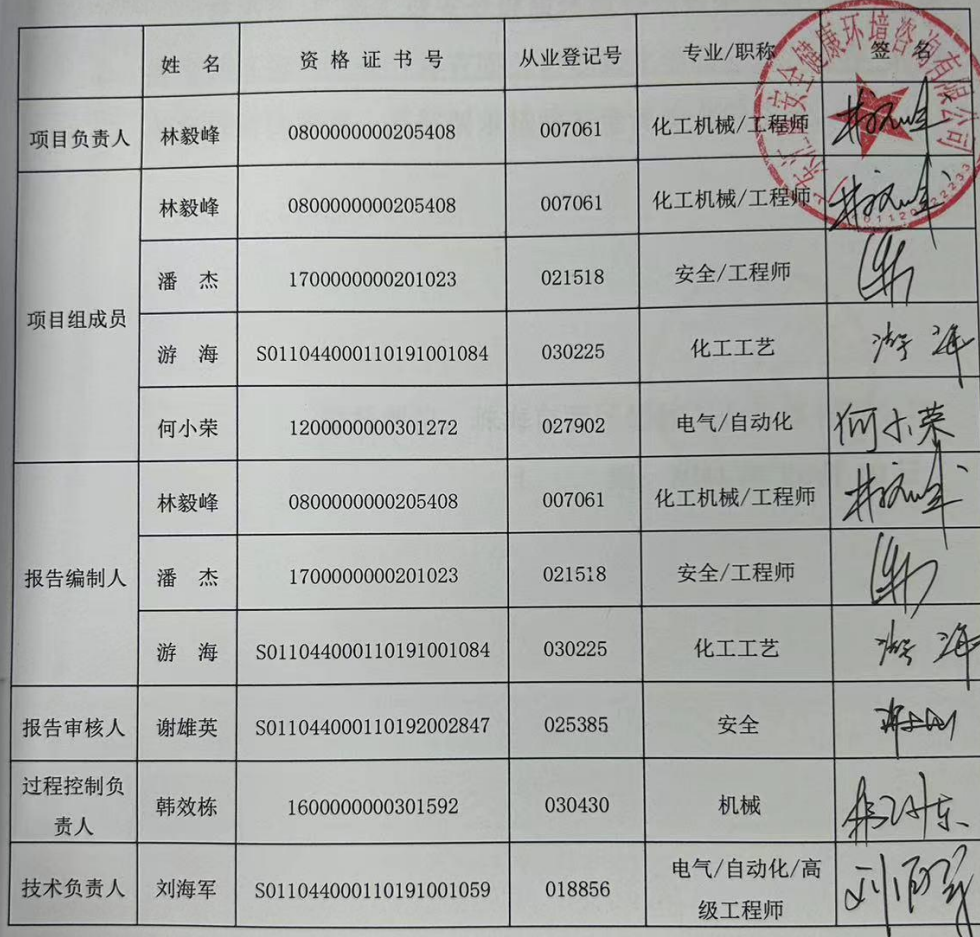 姓 名 资 格 证 书 号 从业登记号 专业/职称 签 名
项目负责人 林毅峰 0800000000205408 007061 化工机械/工程师 林毅峰
项目组成员
林毅峰 0800000000205408 007061 化工机械/工程师 林毅峰
潘 杰 1700000000201023 021518 安全/工程师
游 海 S011044000110191001084 030225 化工工艺 游海
何小荣 1200000000301272 027902 电气/自动化 何小荣
报告编制人
林毅峰 0800000000205408 007061 化工机械/工程师 林毅峰
潘 杰 1700000000201023 021518 安全/工程师
游 海 S011044000110191001084 030225 化工工艺 游海
报告审核人 谢雄英 S011044000110192002847 025385 安全
过程控制负
责人
韩效栋 1600000000301592 030430 机械
技术负责人 刘海军 S011044000110191001059 018856
电气/自动化/高
级工程师
安全健康环境咨询有限公司